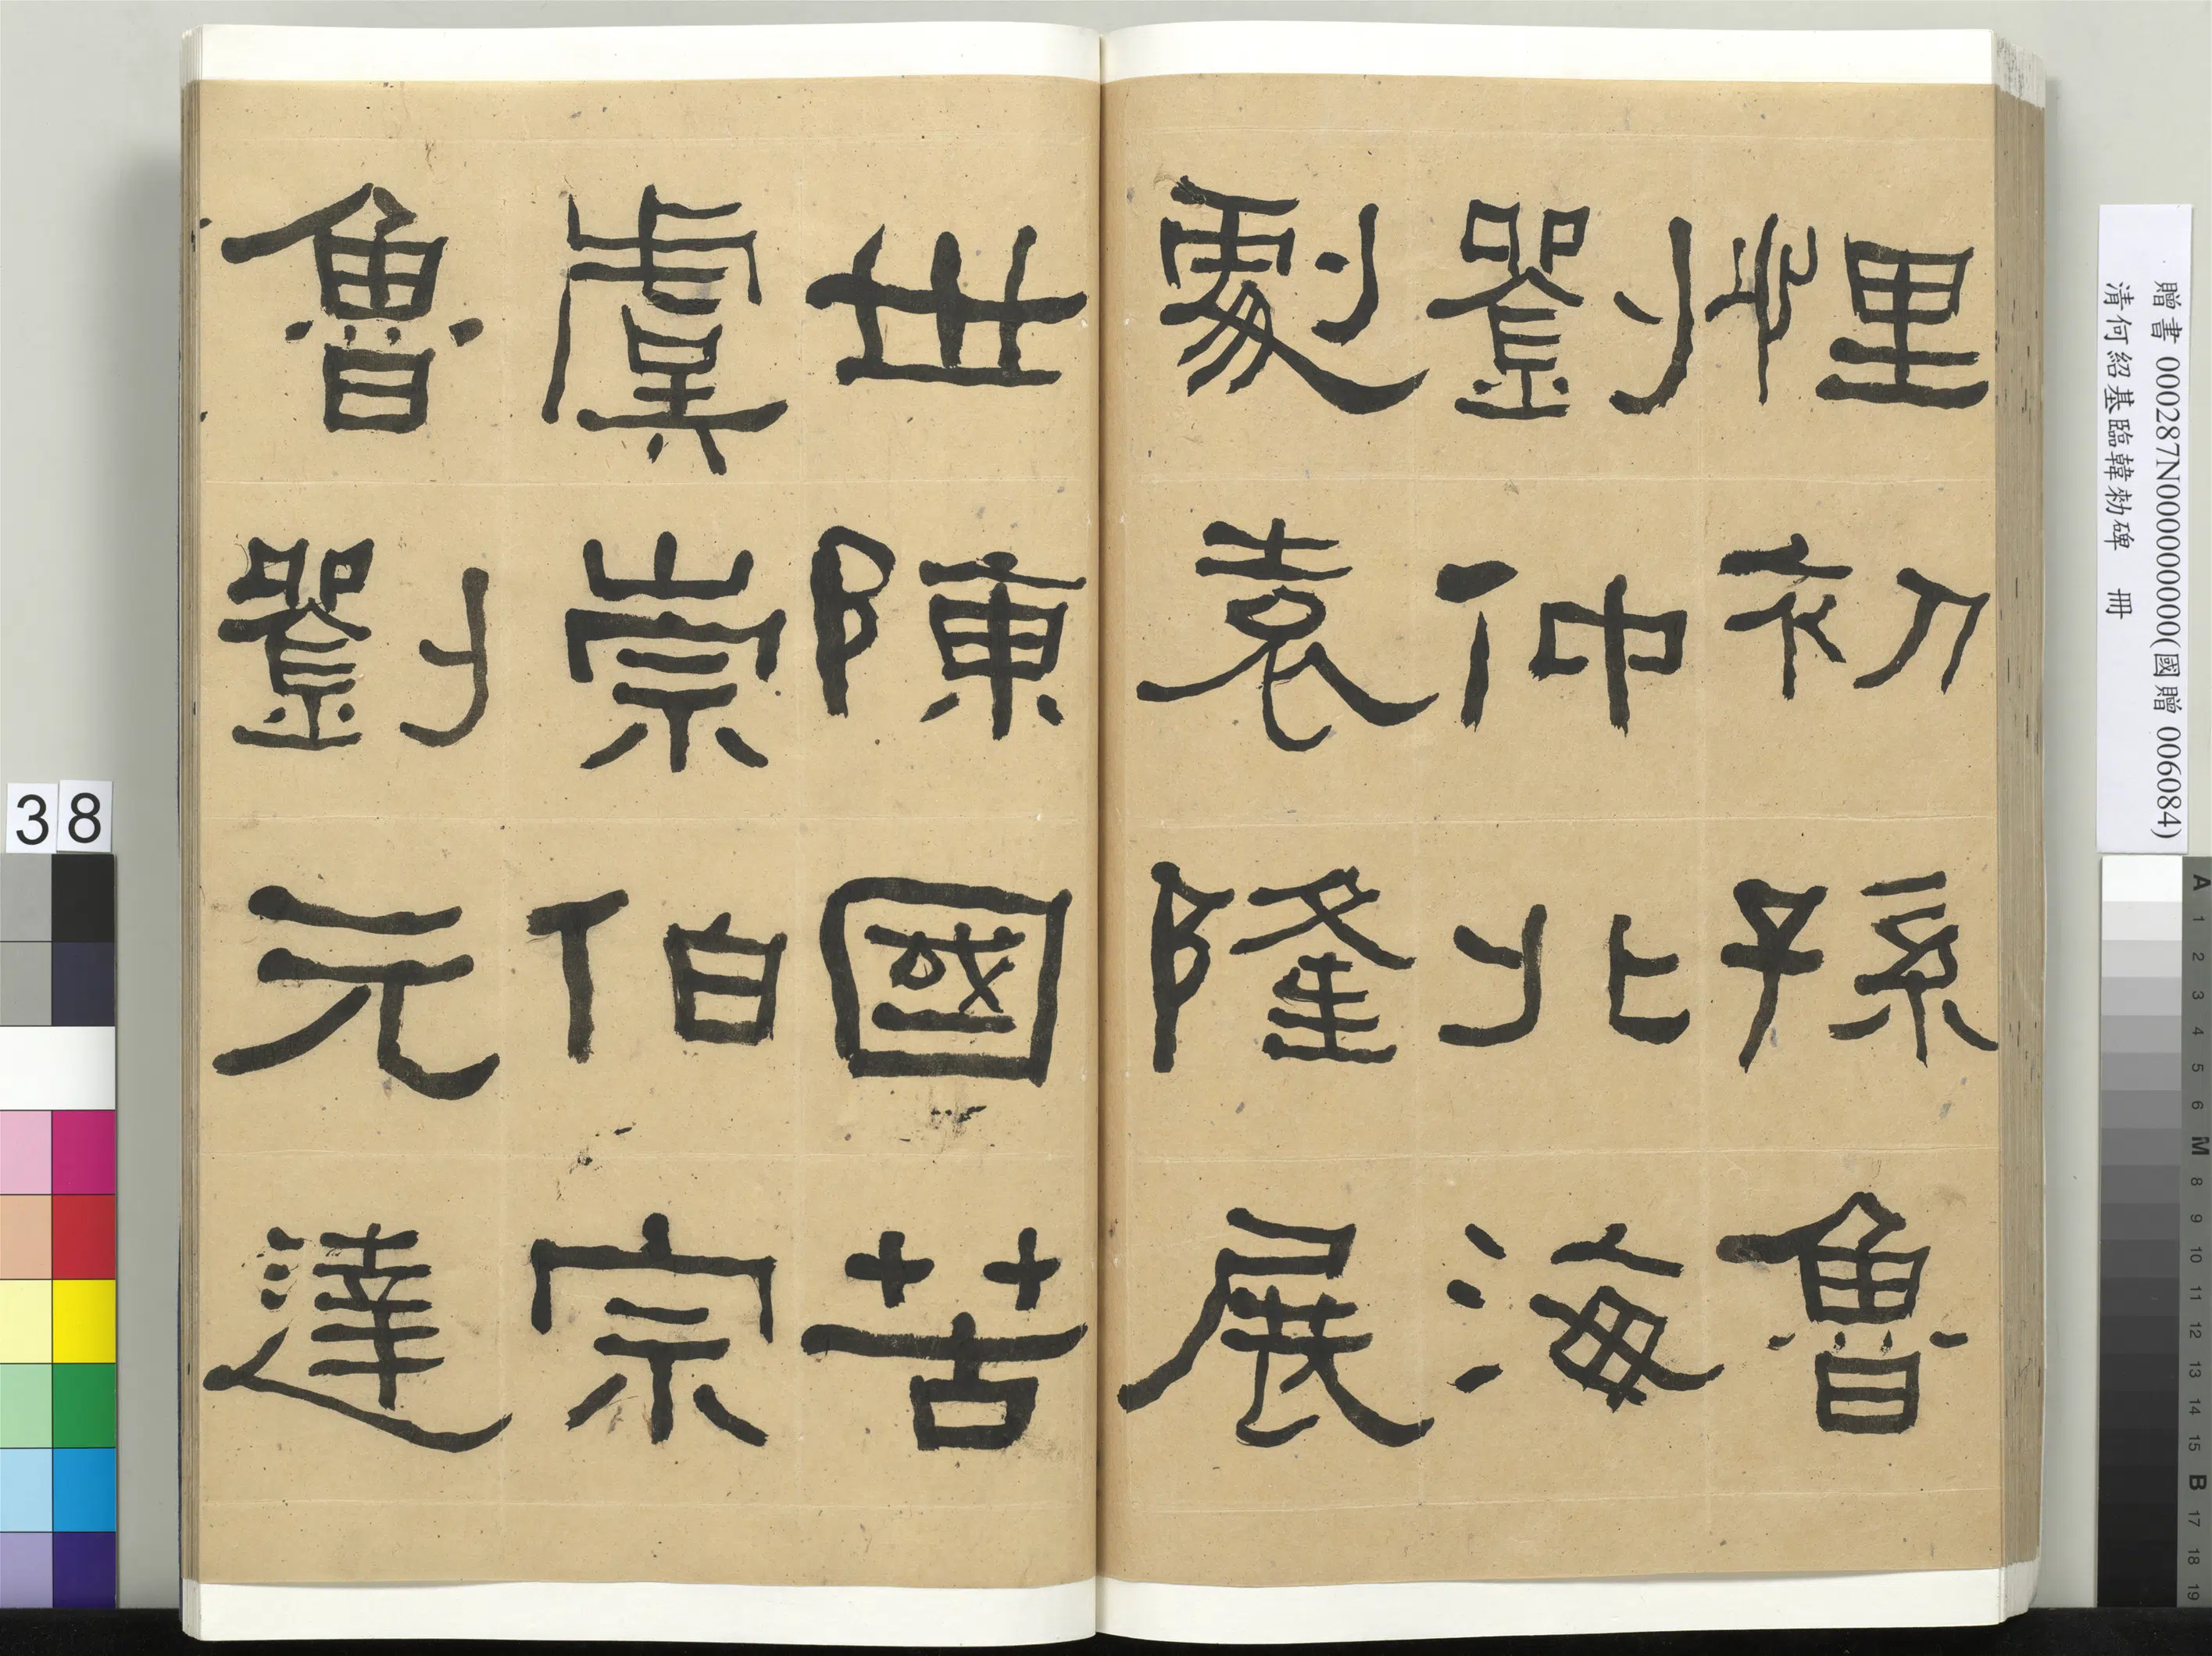 悝初孫魯
劉仲北海
劇袁隆展
世陳國苦
虞崇伯宗
魯劉元達
贈書 000287N000000000(國贈 006084)
清何紹基臨韓勑碑 冊
38
A 1 2 3 4 5 6 M 8 9 10 11 12 13 14 15 B 17 18 19